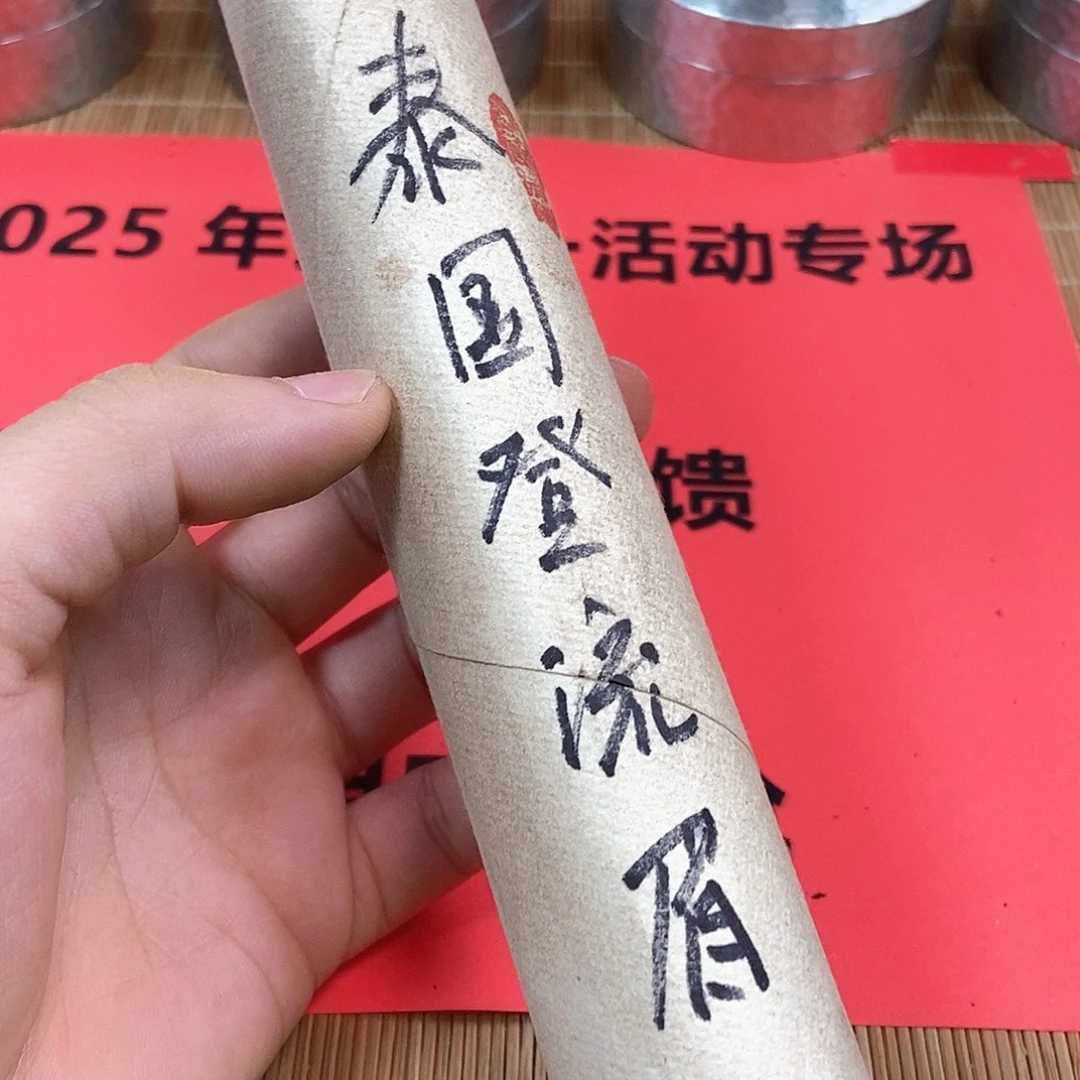 泰国登流眉
025 年 活动专场
馈